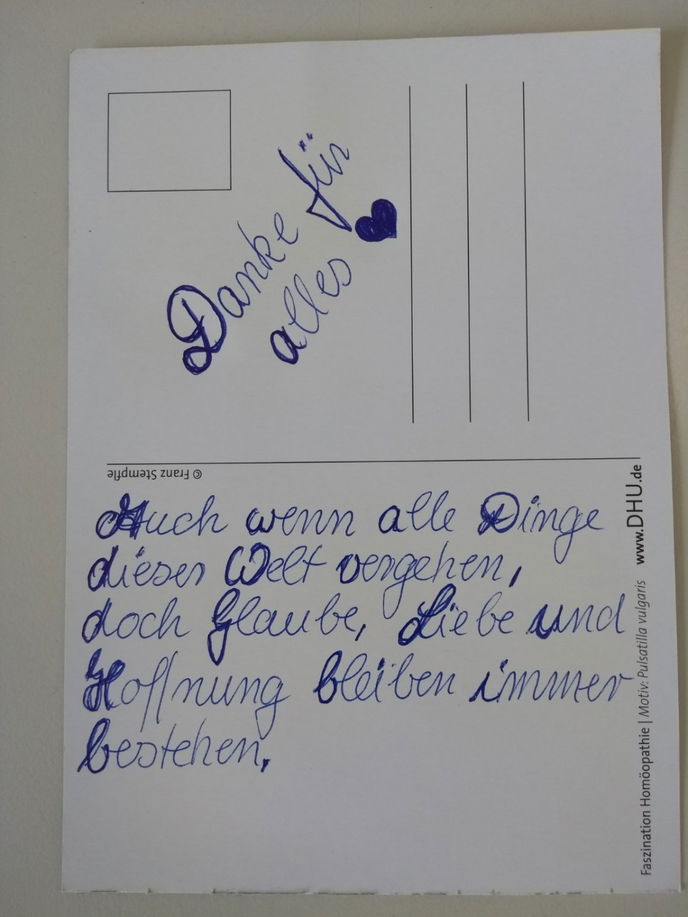 Danke für
alles
© Franz Stempfle
Auch wenn alle Dinge
dieser Welt vergehen,
doch Glaube, Liebe und
Hoffnung bleiben immer
bestehen.
Faszination Homöopathie | Motiv: Pulsatilla vulgaris www.DHU.de